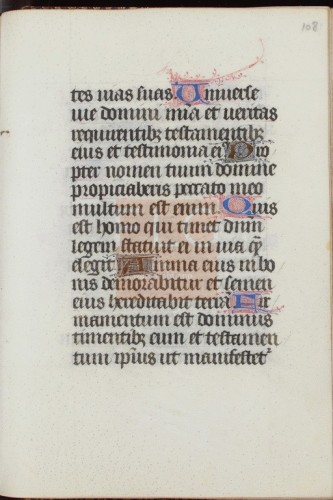 108
tes uias suas. Uniuerse
uie domini mīa et ueritas
requirentibꝫ testamentibꝫ
eius et testimonia eī Pro
pter nomen tuum domine
propiciaberis peccato meo
multum est enim. Quis
est homo qui timet dnm
legem statuit ei in uia qͥ
elegit Anima eius in bo
nis demorabitur et semen
eius hereditabit terrā Fir
mamentum est dominus
timentibꝫ eum et testamen
tum ipsius ut manifestetʳ